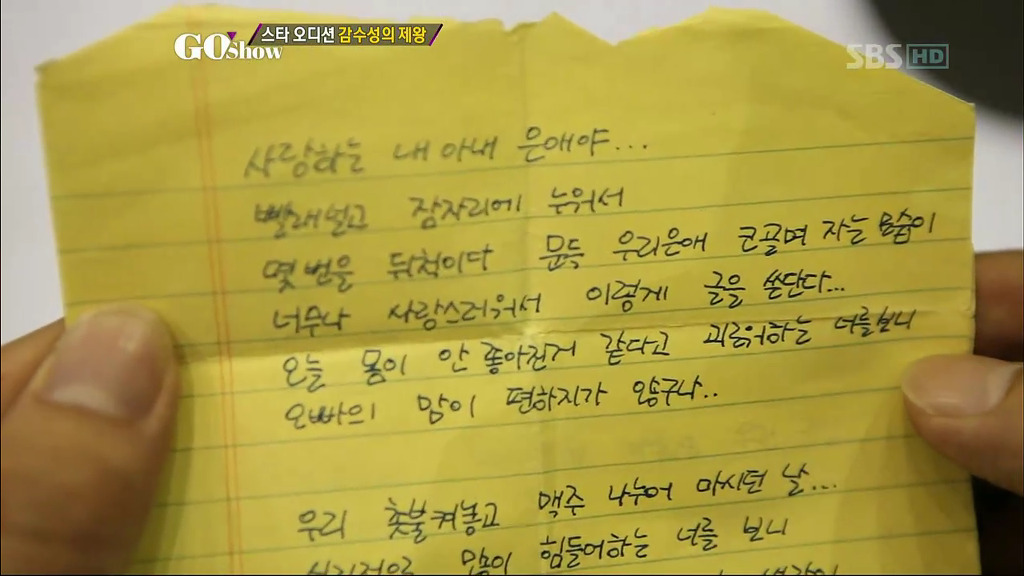 GO show
스타 오디션 감수성의 제왕
SBS HD
사랑하는 내 아내 은애야...
빨래널고 잠자리에 누워서
몇 번을 뒤척이다 문득 우리은애 코골며 자는 모습이
너무나 사랑스러워서 이렇게 글을 쓴단다...
오늘 몸이 안 좋아진거 같다고 괴로워하는 너를보니
오빠의 맘이 편하지가 않구나..
우리 촛불켜놓고 맥주 나누어 마시던 날...
몸이 힘들어하는 너를 보니